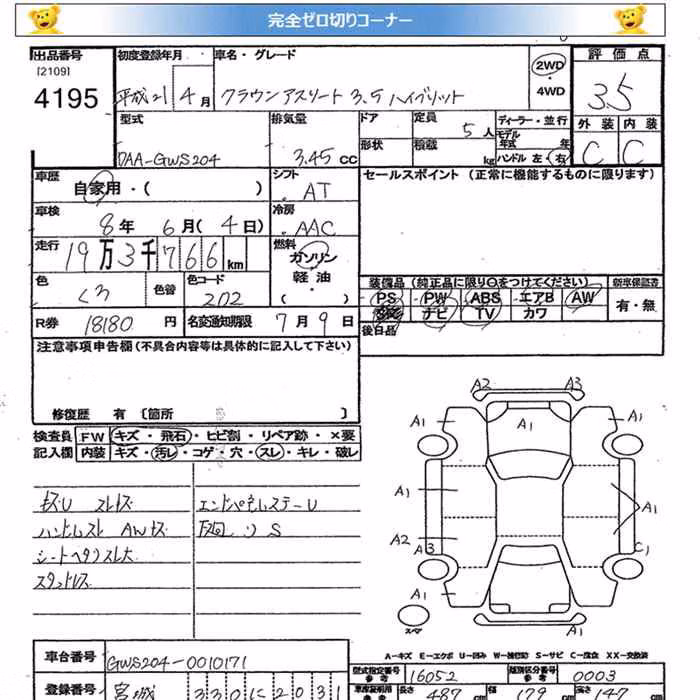 完全ゼロ切りコーナー
出品番号
[2109]
4195
初度登録年月
平成21 4月
車名・グレード
クラウンアスリート 3.5 ハイブリット
2WD
4WD
評価点
3.5
型式
DAA-GWS204
排気量
3.45 CC
ドア
形状
定員
5人
積載
kg
ディーラー・並行
モデル年式 年
ハンドル 左・右
外装 内装
C C
車歴
自家用・( )
シフト
AT
セールスポイント (正常に機能するものに限ります)
車検
8年 6月(4日)
冷房
AAC
走行
19万3千766km
燃料
ガソリン
軽油・
( )
色
くろ
色替
色コード
202
装備品(純正品に限り〇をつけてください)
新車保証書
PS PW ABS エアB AW
ナビ TV カワ
有・無
R券 18180 円
名変通知期限 7月9日
後日品
注意事項申告欄(不具合内容等は具体的に記入して下さい)
修復歴 有 [箇所 ]
検査員 FW キズ・飛石・ヒビ割・リペア跡・×要
記入欄 内装 キズ・汚レ・コゲ・穴・スレ・キレ・破レ
ハンドルスレ AWキズ
シートヘタリスレ大
A2 A3
A1 A1 A1
A1 A1
A2 A3 C1
A1 A1
A1
スペア
A-キズ E-エクボ U-凹み W-補修跡 S-サビ C-腐食 XX-交換済
車台番号
GWS204-0010171
型式指定番号
参考
16052
類別区分番号
参考
0003
登録番号
宮城 330 に 2031
車庫証明用
参考
長さ 487 cm
幅 177 cm
高さ 147 cm